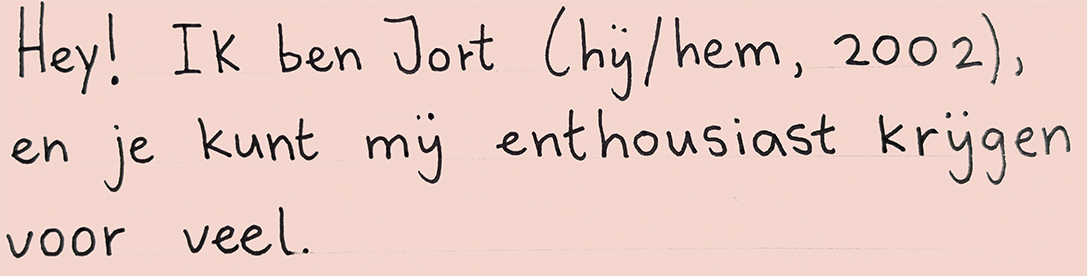 Hey! Ik ben Jort (hij/hem, 2002),
en je kunt mij enthousiast krijgen
voor veel.